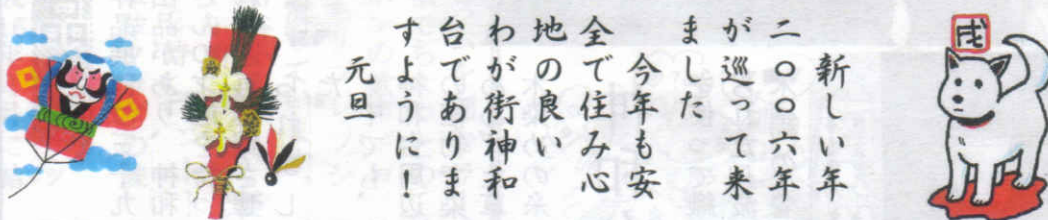 戌
新しい年
二〇〇六年
が巡って来
ました
今年も安
全で住み心
地の良い
わが街神和
台でありま
すように！
元旦